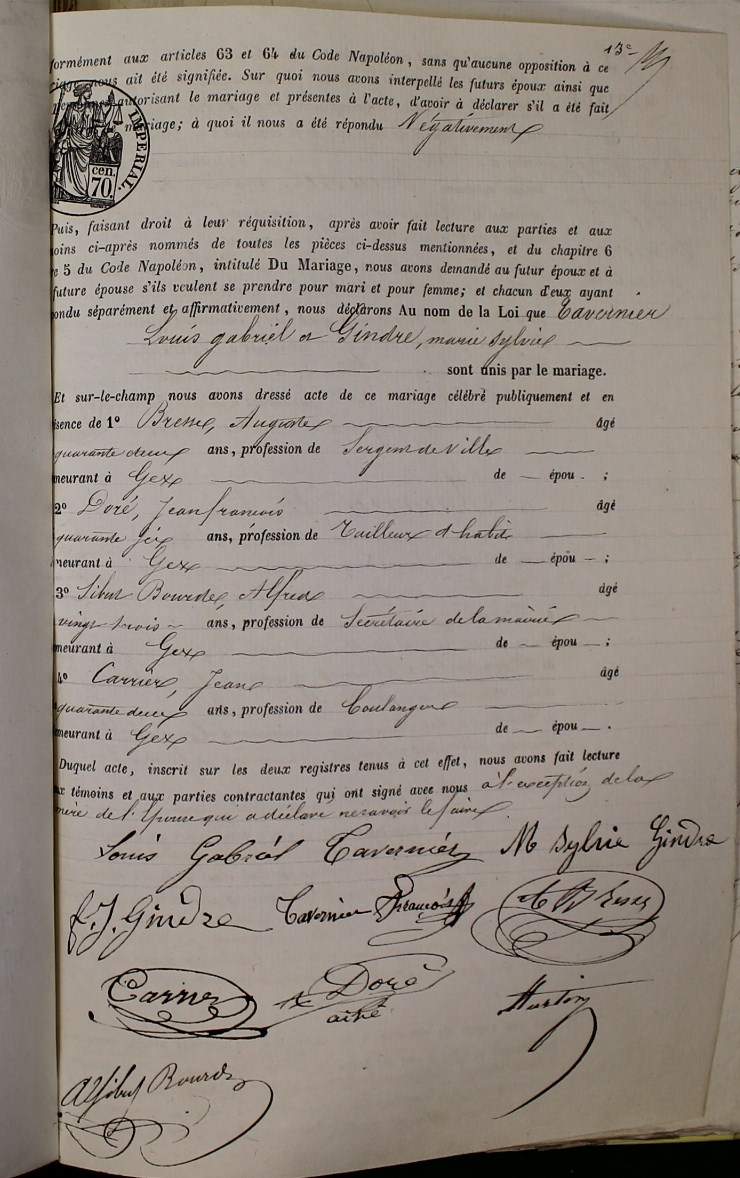 13e
formément aux articles 63 et 64 du Code Napoléon, sans qu'aucune opposition à ce
nous ait été signifiée. Sur quoi nous avons interpellé les futurs époux ainsi que
autorisant le mariage et présentes à l'acte, d'avoir à déclarer s'il a été fait
mariage; à quoi il nous a été répondu Négativement
IMPERIAL.
cen.
70
Puis, faisant droit à leur réquisition, après avoir fait lecture aux parties et aux
oins ci-après nommés de toutes les pièces ci-dessus mentionnées, et du chapitre 6
e 5 du Code Napoléon, intitulé Du Mariage, nous avons demandé au futur époux et à
future épouse s'ils veulent se prendre pour mari et pour femme; et chacun d'eux ayant
ondu séparément et affirmativement, nous déclarons Au nom de la Loi que Tavernier
Louis gabriel et Gindre, marie sylvie
sont unis par le mariage.
Et sur-le-champ nous avons dressé acte de ce mariage célébré publiquement et en
sence de 1° Bresse, Auguste âgé
quarante deux ans, profession de Sergent de Ville
meurant à Gex de — épou - ;
2° Doré, Jean françois âgé
quarante six ans, profession de Tailleur d'habits
meurant à Gex de — épou — ;
3° Sibut Bourde, Alfred âgé
vingt trois ans, profession de Secrétaire de la mairie
meurant à Gex de — épou — ;
4° Carrier, Jean âgé
quarante deux ans, profession de boulanger
meurant à Gex de — épou — .
Duquel acte, inscrit sur les deux registres tenus à cet effet, nous avons fait lecture
ux témoins et aux parties contractantes qui ont signé avec nous à l'exception de la
mère de l'Epouse qui a déclaré ne savoir le faire.
Louis Gabriel Tavernier M Sylvie Gindre
f. J. Gindre Tavernier François Bresse
Carrier Doré
aîné
A Sibut Bourde